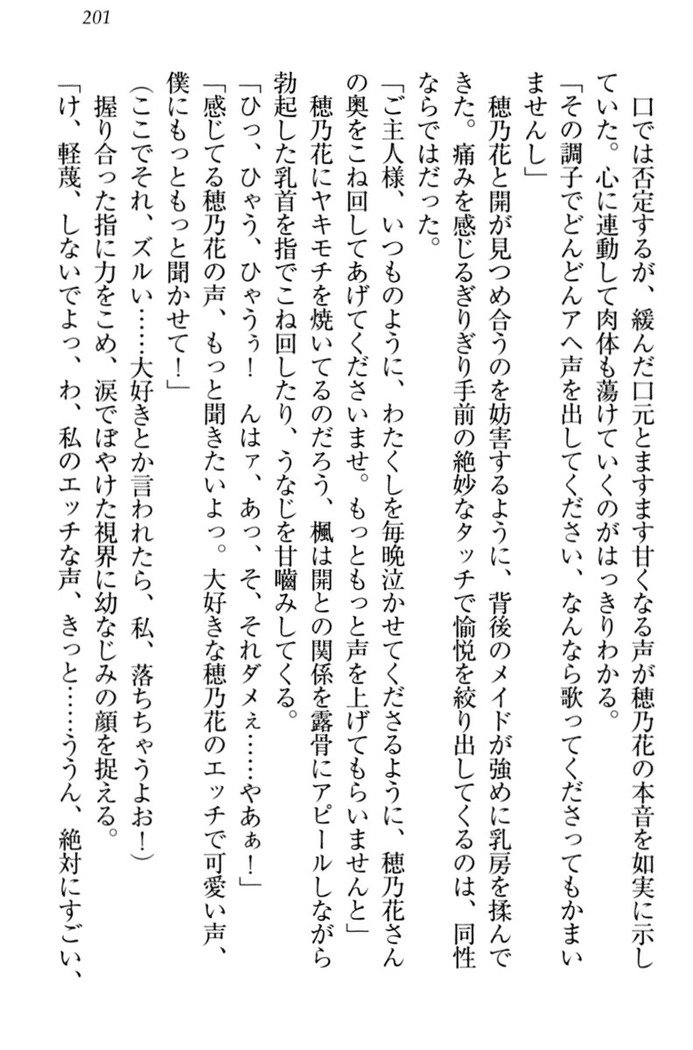 201
口では否定するが、緩んだ口元とますます甘くなる声が穂乃花の本音を如実に示し
ていた。心に連動して肉体も蕩けていくのがはっきりわかる。
「その調子でどんどんアヘ声を出してください、なんなら歌ってくださってもかまい
ませんし」
穂乃花と開が見つめ合うのを妨害するように、背後のメイドが強めに乳房を揉んで
きた。痛みを感じるぎりぎり手前の絶妙なタッチで愉悦を絞り出してくるのは、同性
ならではだった。
「ご主人様、いつものように、わたくしを毎晩泣かせてくださるように、穂乃花さん
の奥をこね回してあげてくださいませ。もっともっと声を上げてもらいませんと」
穂乃花にヤキモチを焼いてるのだろう、楓は開との関係を露骨にアピールしながら
勃起した乳首を指でこね回したり、うなじを甘噛みしてくる。
「ひっ、ひゃう、ひゃうぅ！　んはァ、あっ、そ、それダメぇ……やあぁ！」
「感じてる穂乃花の声、もっと聞きたいよっ。大好きな穂乃花のエッチで可愛い声、
僕にもっともっと聞かせて！」
（ここでそれ、ズルい……大好きとか言われたら、私、落ちちゃうよお！）
握り合った指に力をこめ、涙でぼやけた視界に幼なじみの顔を捉える。
「け、軽蔑、しないでよっ、わ、私のエッチな声、きっと……ううん、絶対にすごい、